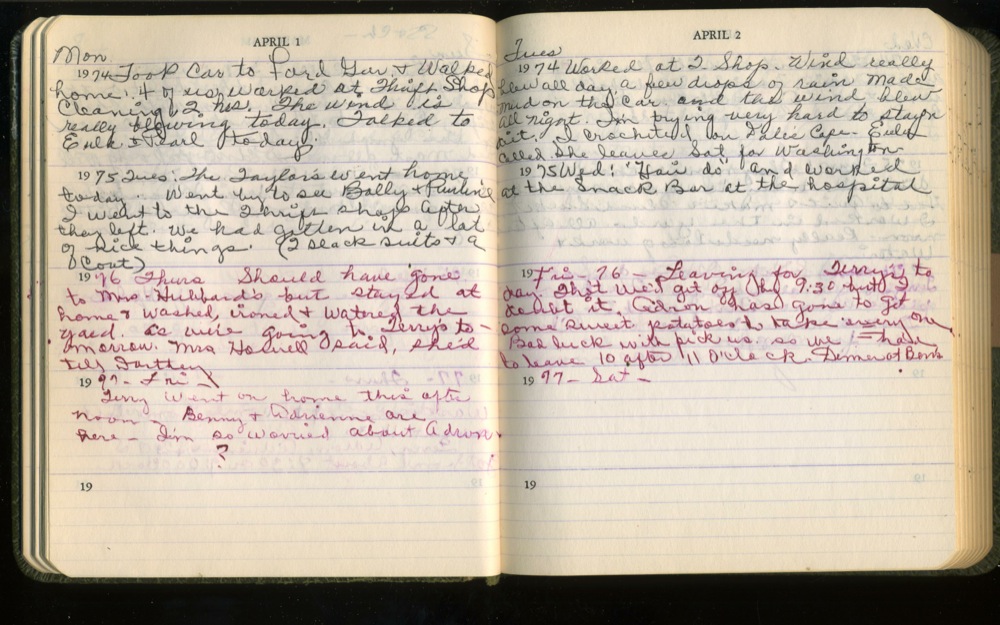 APRIL 1
Mon.
1974 Took Car to Ford Gar. & Walked
home. 4 of us worked at Thift Shop
Cleaning, 2 hrs. The wind is
really blowing today. Talked to
Eula & Pearl today.
1975 Tues. The Taylors went home
today. Went by to see Bally &
I went to the Thrift shop after
they left. We had gotten in a lot
of nice things. (2 slack suits & a
coat)
1976 Thurs Should have gone
to Mrs. Hibbard's but stayed at
home & washed, ironed & watered the
yard. as we're going to Terry's to-
morrow. Mrs Howell said, she'd
tell
1977- Fri-
Terry went on home this after
noon - Benny & are
here - I'm so worried about Adron.
?
19
APRIL 2
Tues
1974 Worked at T Shop. Wind really
blew all day a few drops of rain made
mud on the car. and the wind blew
all night. I'm trying very hard to stay
I crocheted on Cape. Eula
called. She leaves Sat for Washington
1975 Wed: "How do" and worked
at the Snack Bar at the hospital
19 Fri - 76 - Leaving for Terry's to
day. That we'd get off by 9:30 but I
doubt it. Adron has gone to get
some sweet potatoes to take every one
Bad luck with pick us. so we had
to leave 10 after 11 O'clock.
1977 - Sat -
19